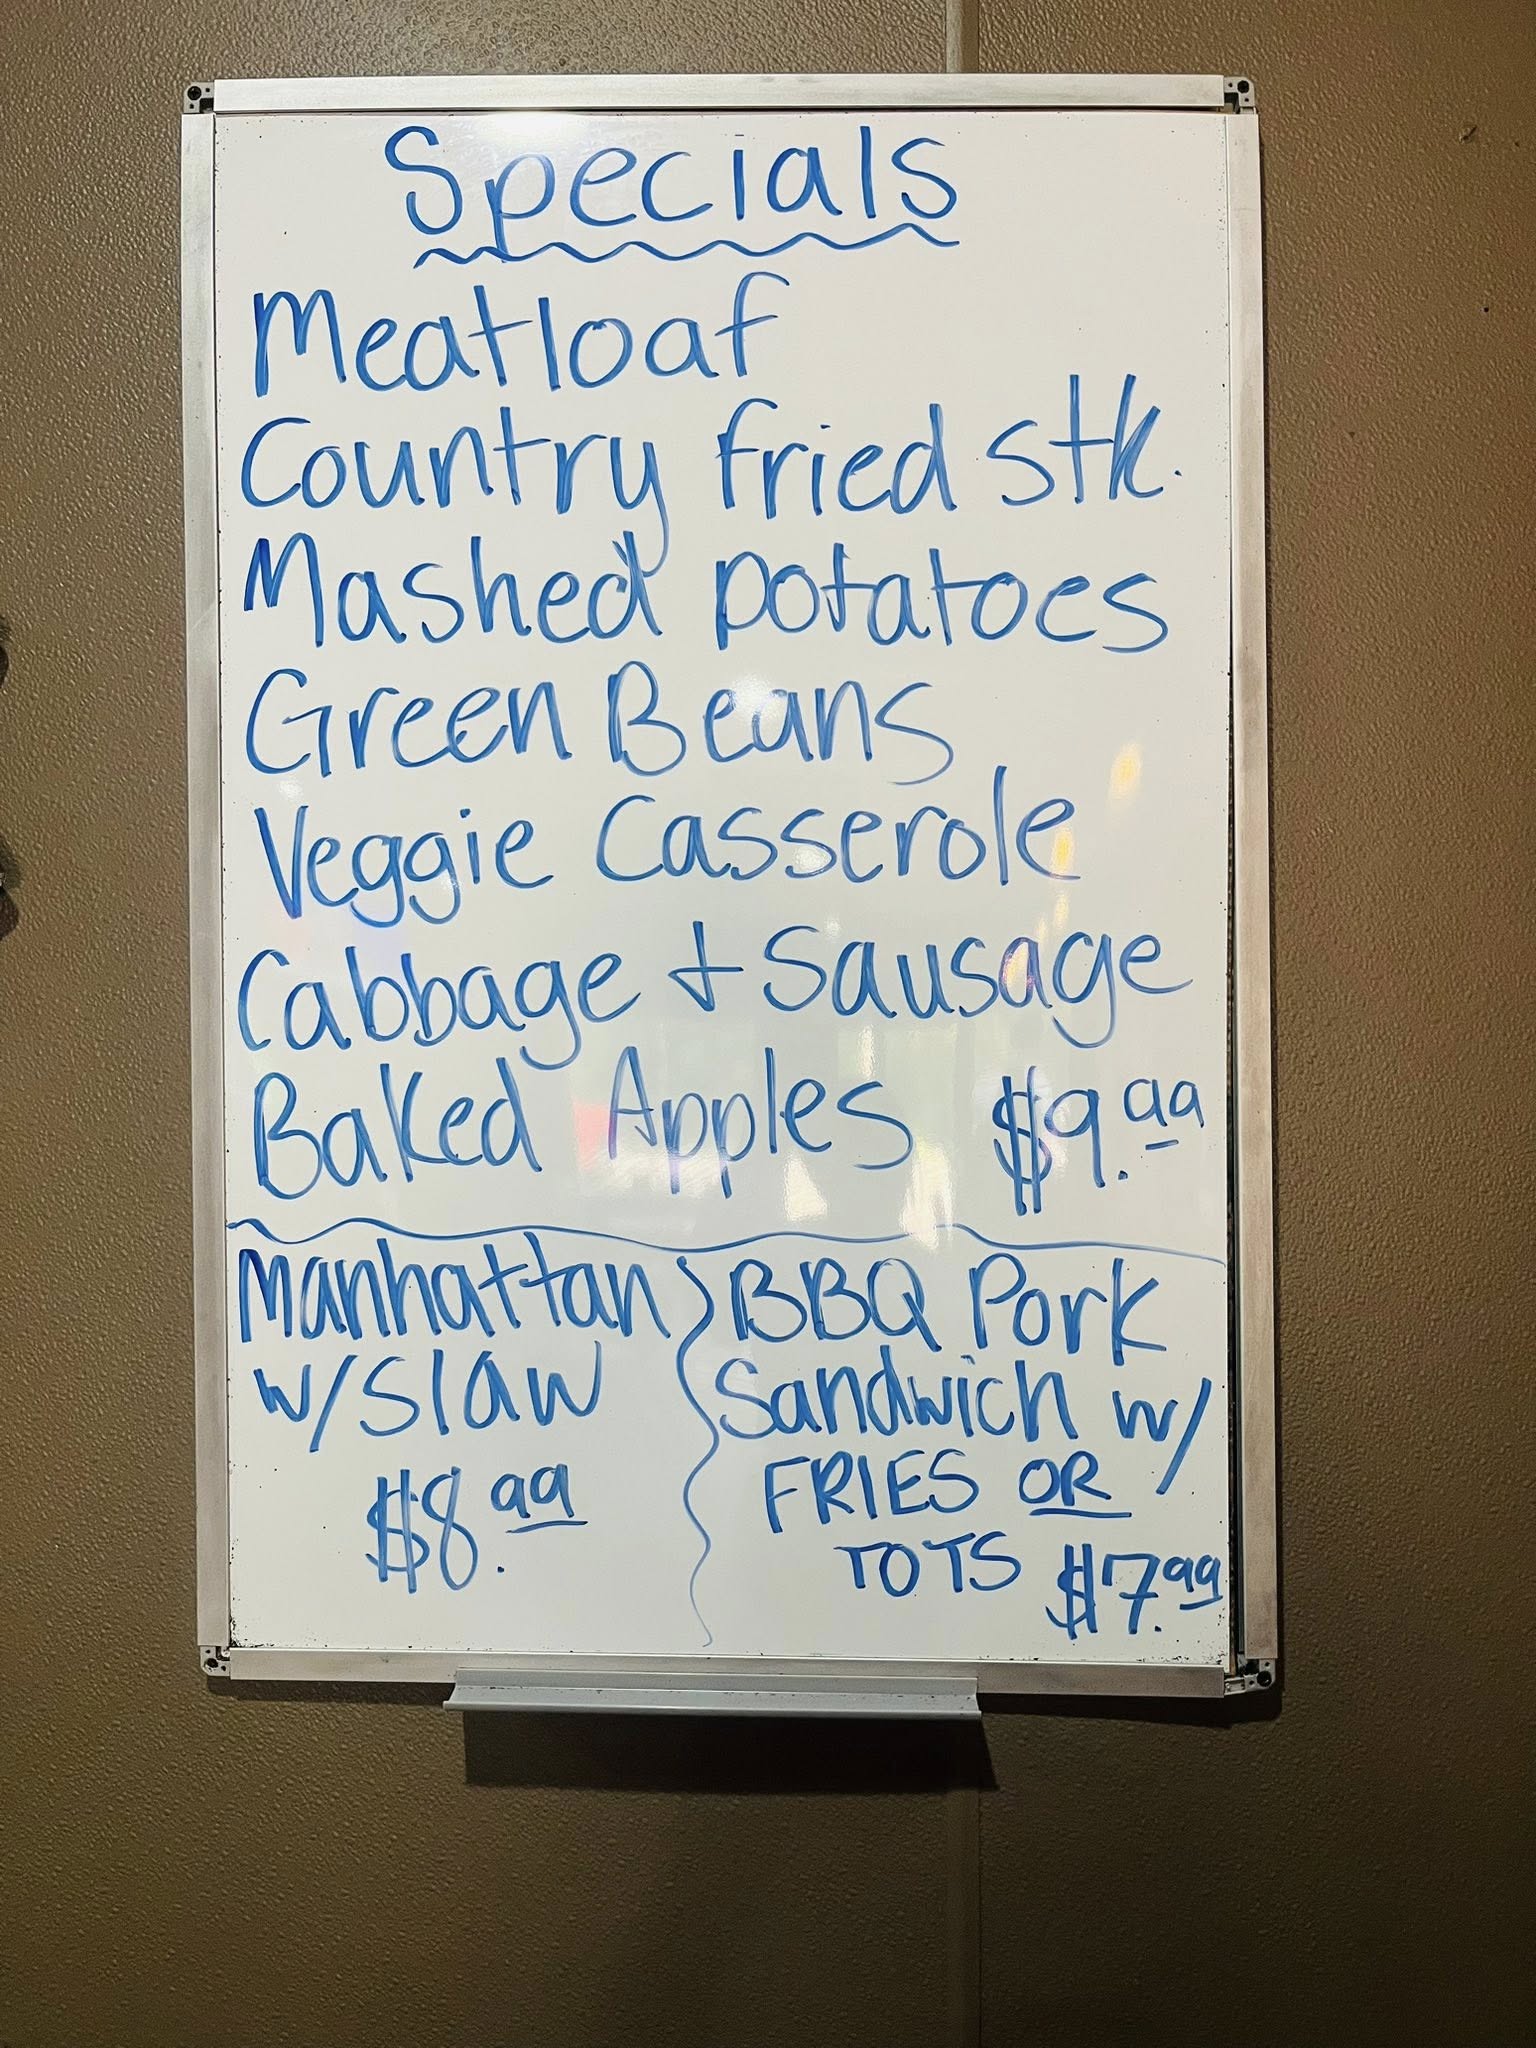 Specials
Meatloaf
Country fried stk.
Mashed potatoes
Green Beans
Veggie Casserole
Cabbage + Sausage
Baked Apples $9.99
Manhattan
w/slaw
$8.99
BBQ Pork
Sandwich w/
FRIES OR
TOTS $7.99